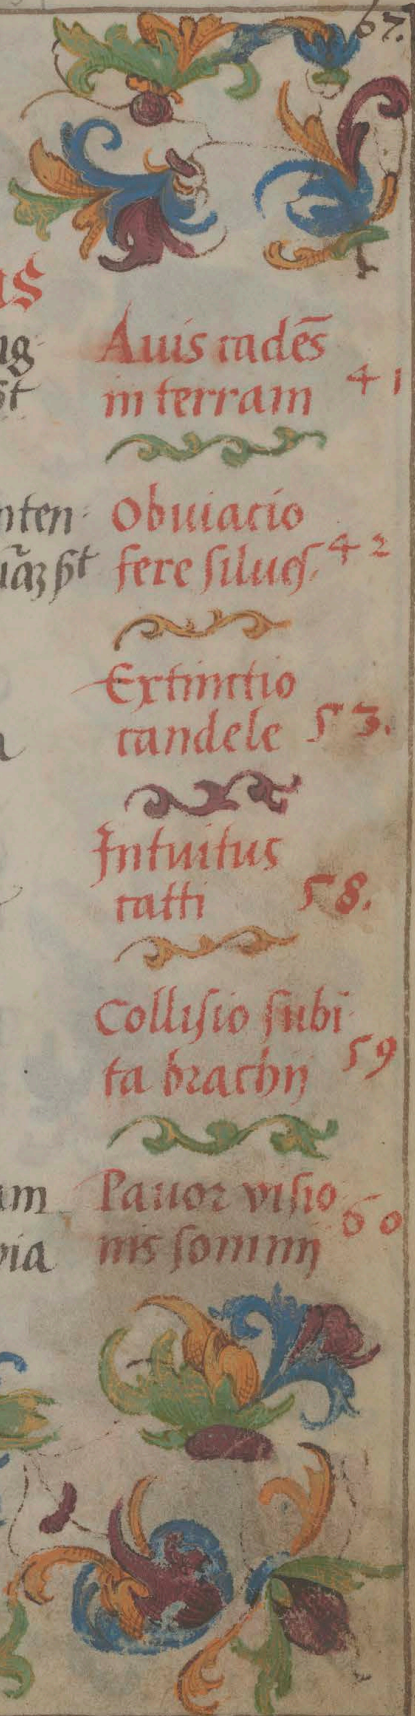 67.
us
ng Auis cadēs
st in terram 41
nten Obuiacio
fere silues. 42
Extinctio
a candele 53.
Intuitus
catti 58.
Collisio subi
ta brachij 59
am Pauor visio
via nis somnij 60